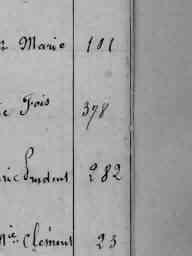 Marie 101
Fois 378
Prudent 282
Clément 23